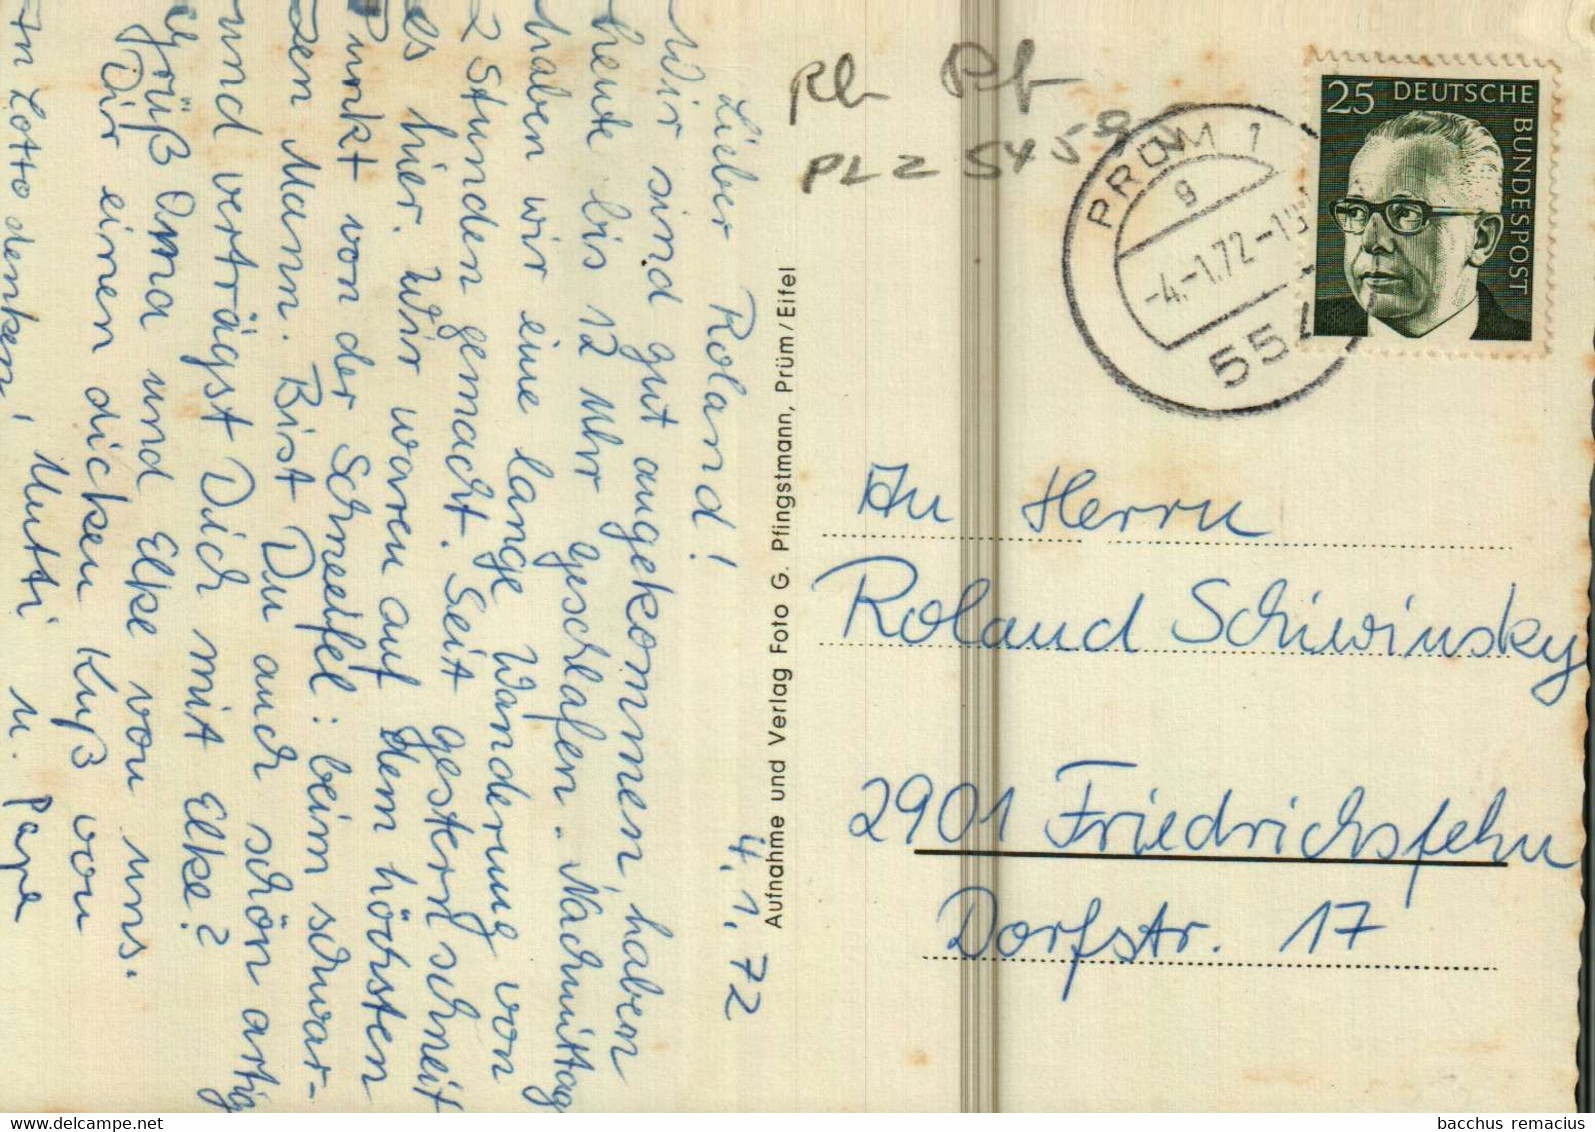 Lieber Roland! 4.1.72
Wir sind gut angekommen, haben
heute bis 12 Uhr geschlafen. Nachmittag
haben wir eine lange Wanderung von
2 Stunden gemacht. Seit gestern schneit
es hier. Wir waren auf dem höchsten
Punkt von der Schneeifel: beim schwar-
zen Mann. Bist Du auch schön artig
und verträgst Dich mit Elke?
Grüß Oma und Elke von uns.
Dir einen dicken Kuß von
Mutti u. Papa
An Lotto denken!
Aufnahme und Verlag Foto G. Pfingstmann, Prüm/Eifel
PLZ 5459
PRÜM 1
g
-4.-1.72-1
554
25 DEUTSCHE
BUNDESPOST
An Herrn
Roland Schiwinsky
2901 Friedrichsfehn
Dorfstr. 17
bacchus remacius